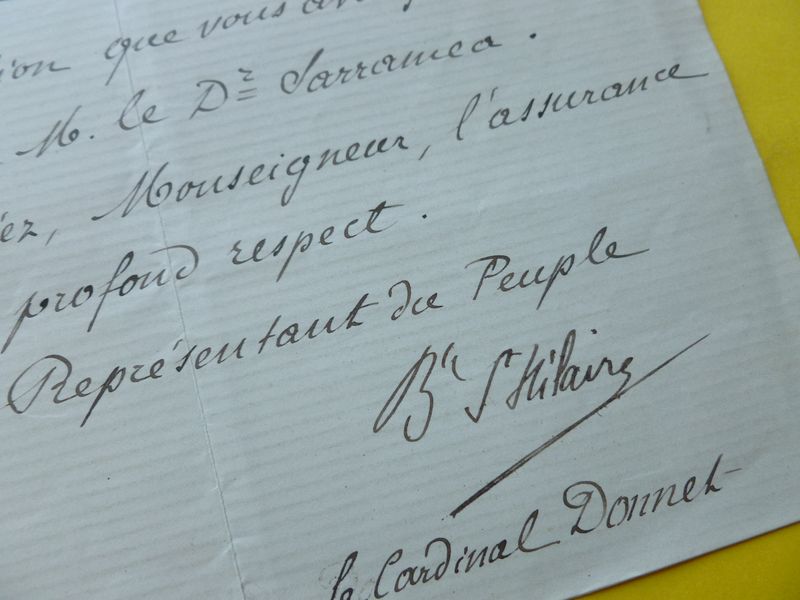 ion que vous
M. le Dr Sarramea.
ez, Monseigneur, l'assurance
profond respect.
Représentant du Peuple
Bh St Hilaire
le Cardinal Donnet